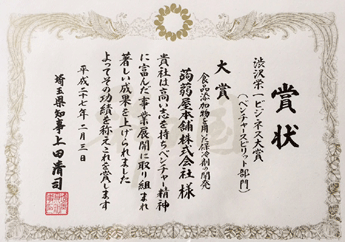 賞状
渋沢栄一ビジネス大賞
(ベンチャースピリット部門)
大賞
食品添加物を用いた保冷剤の開発
蒟蒻屋本舗株式会社 様
貴社は高い志を持ちベンチャー精神
に富んだ事業展開に取り組まれ
著しい成果を上げられました
よってその功績を称えこれを賞します
平成二十七年二月三日
埼玉県知事 上田清司